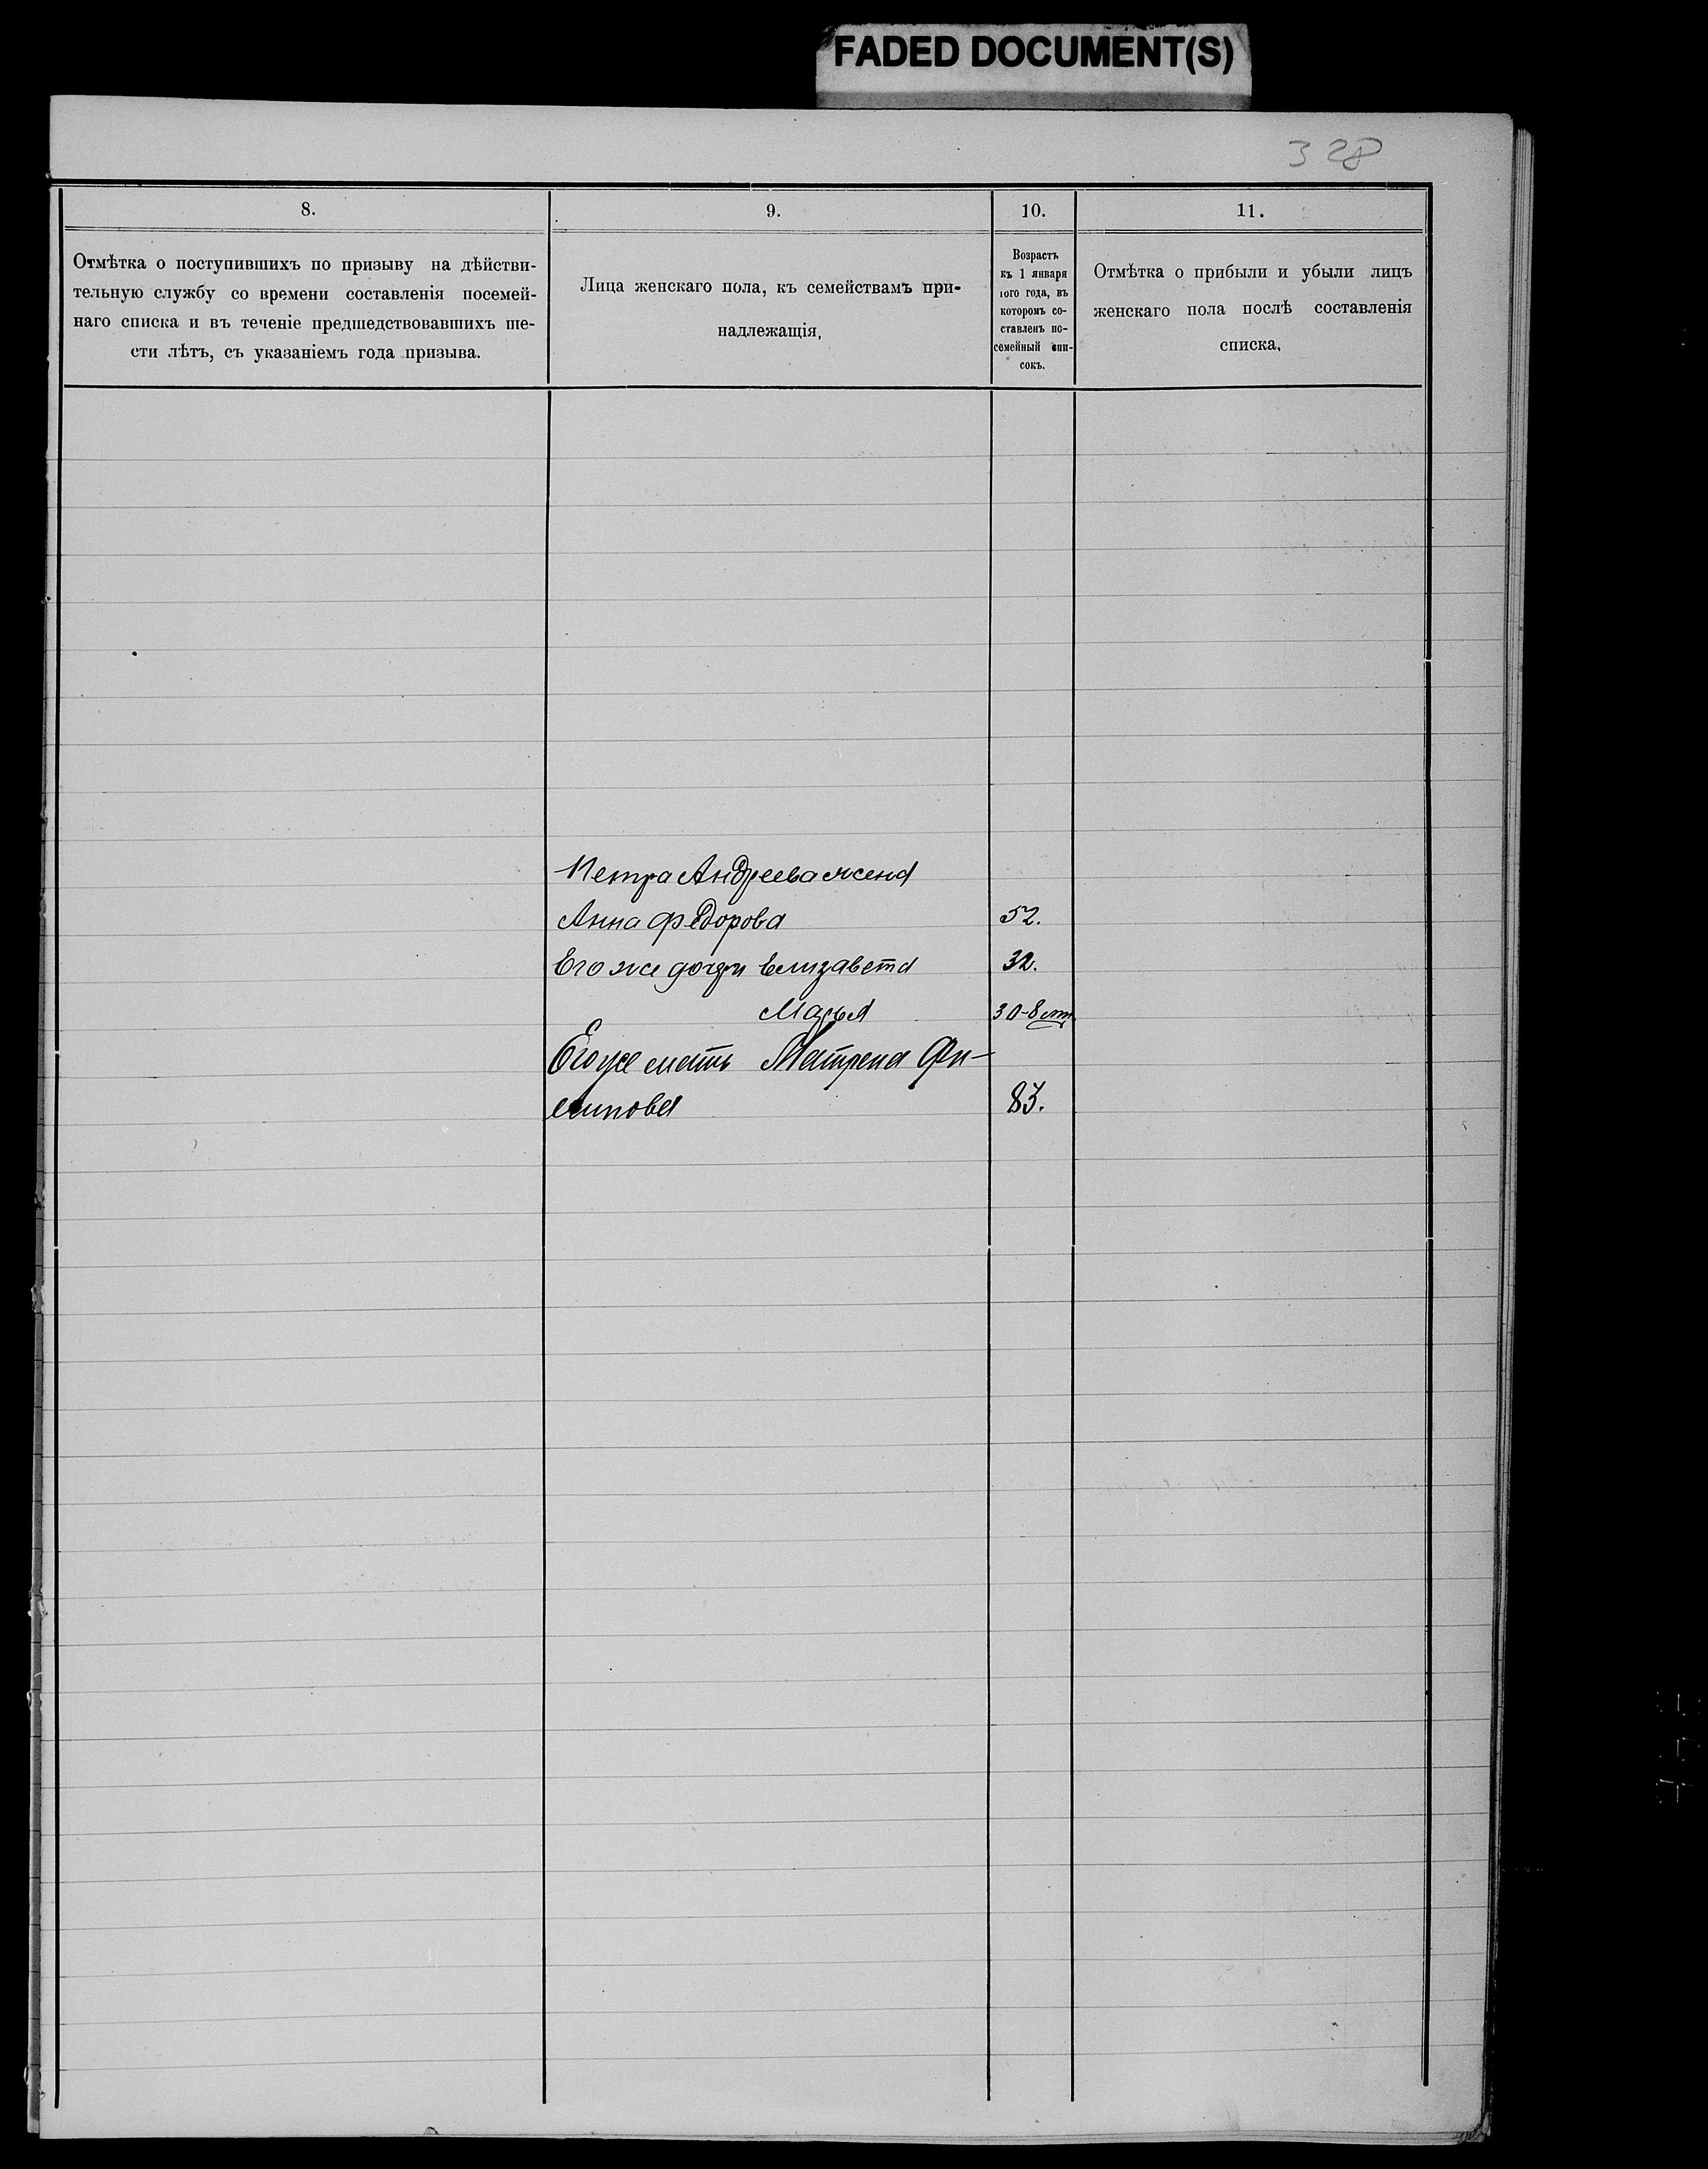 FADED DOCUMENT(S)
328
8.
9.
10.
11.
Отмѣтка о поступившихъ по призыву на дѣйстви-
тельную службу со времени составленія посемей-
наго списка и въ теченіе предшедствовавшихъ ше-
сти лѣтъ, съ указаніемъ года призыва.
Лица женскаго пола, къ семействамъ при-
надлежащія,
Возрастъ
къ 1 января
того года, въ
которомъ со-
ставленъ по-
семейный спи-
сокъ.
Отмѣтка о прибыли и убыли лицъ
женскаго пола послѣ составленія
списка,
Петра Андреева жена
Анна Федорова 52.
Его же дочери Елизавета 32.
Марья 30-8
Его же мать Матрена Фи-
липова 83.